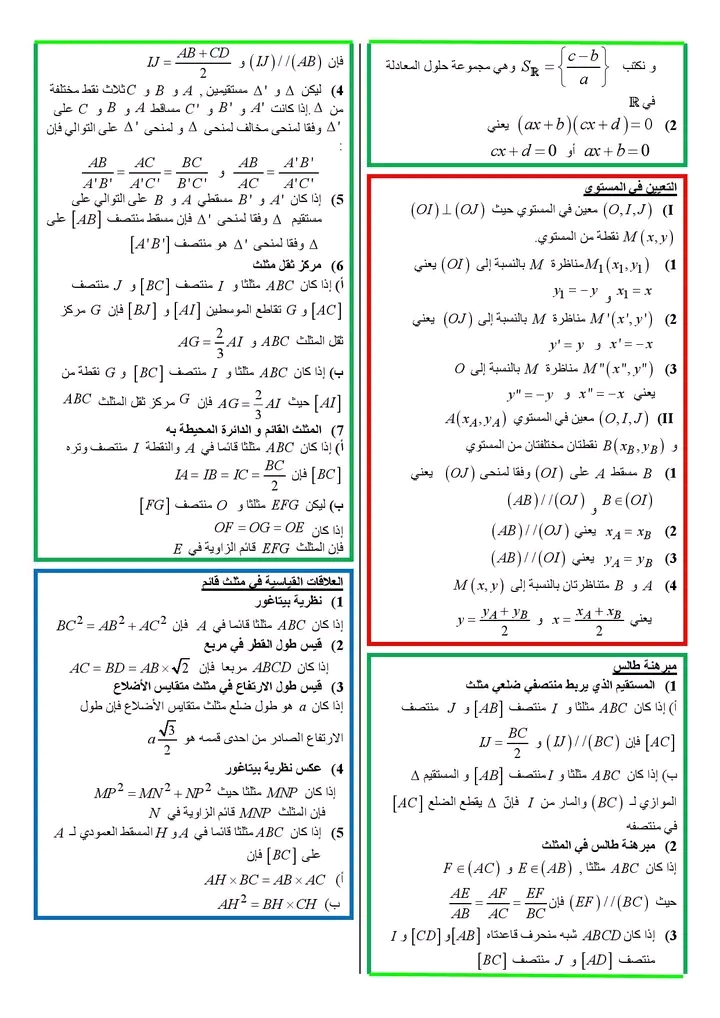 و نكتب S_ℝ = { (c − b) / a } وهي مجموعة حلول المعادلة
في ℝ
2) (ax + b)(cx + d) = 0 يعني
ax + b = 0 أو cx + d = 0
التعيين في المستوي
I) (O, I, J) معين في المستوي حيث (OI) ⊥ (OJ)
M(x, y) نقطة من المستوي.
1) M₁(x₁, y₁) مناظرة M بالنسبة إلى (OI) يعني
x₁ = x و y₁ = −y
2) M'(x', y') مناظرة M بالنسبة إلى (OJ) يعني
x' = −x و y' = y
3) M"(x", y") مناظرة M بالنسبة إلى O
يعني x" = −x و y" = −y
II) (O, I, J) معين في المستوي A(x_A, y_A)
و B(x_B, y_B) نقطتان مختلفتان من المستوي
1) B مسقط A على (OI) وفقا لمنحى (OJ) يعني
B ∈ (OI) و (AB) // (OJ)
2) x_A = x_B يعني (AB) // (OJ)
3) y_A = y_B يعني (AB) // (OI)
4) A و B متناظرتان بالنسبة إلى M(x, y)
يعني x = (x_A + x_B) / 2 و y = (y_A + y_B) / 2
مبرهنة طالس
1) المستقيم الذي يربط منتصفي ضلعي مثلث
أ) إذا كان ABC مثلثا و I منتصف [AB] و J منتصف
[AC] فإن (IJ) // (BC) و IJ = BC / 2
ب) إذا كان ABC مثلثا و I منتصف [AB] و المستقيم Δ
الموازي لـ (BC) والمار من I فإنّ Δ يقطع الضلع [AC]
في منتصفه
2) مبرهنة طالس في المثلث
إذا كان ABC مثلثا , E ∈ (AB) و F ∈ (AC)
حيث (EF) // (BC) فإن AE / AB = AF / AC = EF / BC
3) إذا كان ABCD شبه منحرف قاعدتاه [AB] و [CD] و I
منتصف [AD] و J منتصف [BC]
فإن (IJ) // (AB) و IJ = (AB + CD) / 2
4) ليكن Δ و Δ' مستقيمين , A و B و C ثلاث نقط مختلفة
من Δ .إذا كانت A' و B' و C' مساقط A و B و C على
Δ' وفقا لمنحى مخالف لمنحى Δ و لمنحى Δ' على التوالي فإن
:
AB / A'B' = AC / A'C' = BC / B'C' و AB / AC = A'B' / A'C'
5) إذا كان A' و B' مسقطي A و B على التوالي على
مستقيم Δ وفقا لمنحى Δ' فإن مسقط منتصف [AB] على
Δ وفقا لمنحى Δ' هو منتصف [A'B']
6) مركز ثقل مثلث
أ) إذا كان ABC مثلثا و I منتصف [BC] و J منتصف
[AC] و G تقاطع الموسطين [AI] و [BJ] فإن G مركز
ثقل المثلث ABC و AG = 2/3 AI
ب) إذا كان ABC مثلثا و I منتصف [BC] و G نقطة من
[AI] حيث AG = 2/3 AI فإن G مركز ثقل المثلث ABC
7) المثلث القائم و الدائرة المحيطة به
أ) إذا كان ABC مثلثا قائما في A والنقطة I منتصف وتره
[BC] فإن IA = IB = IC = BC / 2
ب) ليكن EFG مثلثا و O منتصف [FG]
إذا كان OF = OG = OE
فإن المثلث EFG قائم الزاوية في E
العلاقات القياسية في مثلث قائم
1) نظرية بيتاغور
إذا كان ABC مثلثا قائما في A فإن BC² = AB² + AC²
2) قيس طول القطر في مربع
إذا كان ABCD مربعا فإن AC = BD = AB × √2
3) قيس طول الارتفاع في مثلث متقايس الأضلاع
إذا كان a هو طول ضلع مثلث متقايس الأضلاع فإن طول
الارتفاع الصادر من احدى قممه هو a √3 / 2
4) عكس نظرية بيتاغور
إذا كان MNP مثلثا حيث MP² = MN² + NP²
فإن المثلث MNP قائم الزاوية في N
5) إذا كان ABC مثلثا قائما في A و H المسقط العمودي لـ A
على [BC] فإن
أ) AH × BC = AB × AC
ب) AH² = BH × CH